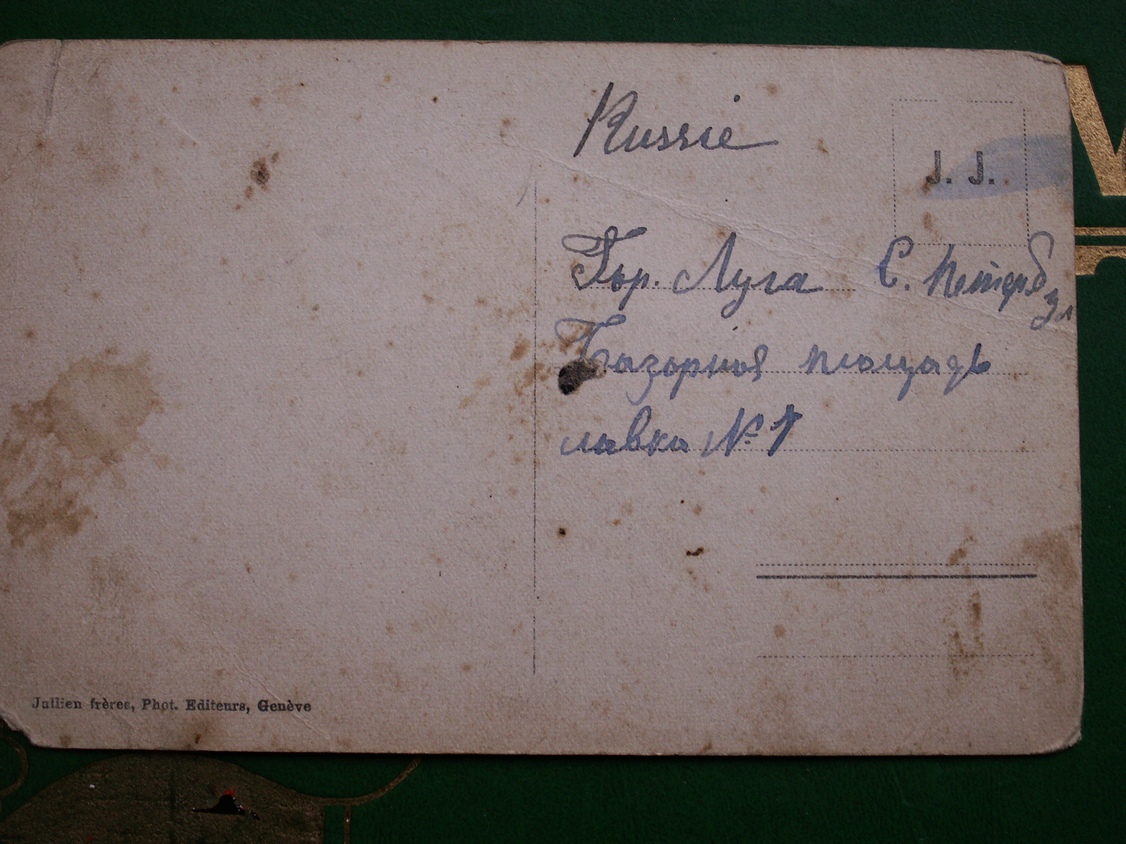 Russie
J. J.
Гор. Луга С. Петерб
Базарная площадь
лавка № 1
Jullien frères, Phot. Editeurs, Genève